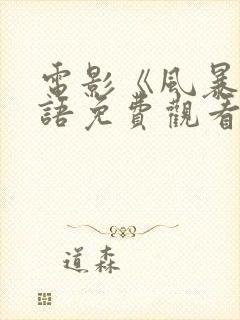 電影《風暴
語免費觀看
道森